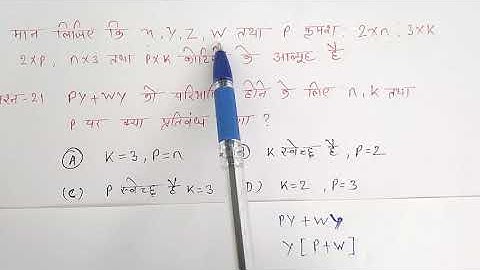 मान लिजिए कि n, Y, Z, W तथा P क्रमश: 2×n, 3×K
2×P, n×3 तथा P×K कोटि के आव्यूह है
प्रश्न-21 PY+WY को परिभाषित होने के लिए n, k तथा
P पर क्या प्रतिबंध ?
(A) K=3, P=n
K स्वेच्छ है, P=2
(C) P स्वेच्छ है K=3
D) K=2, P=3
PY+WY
Y[P+W]